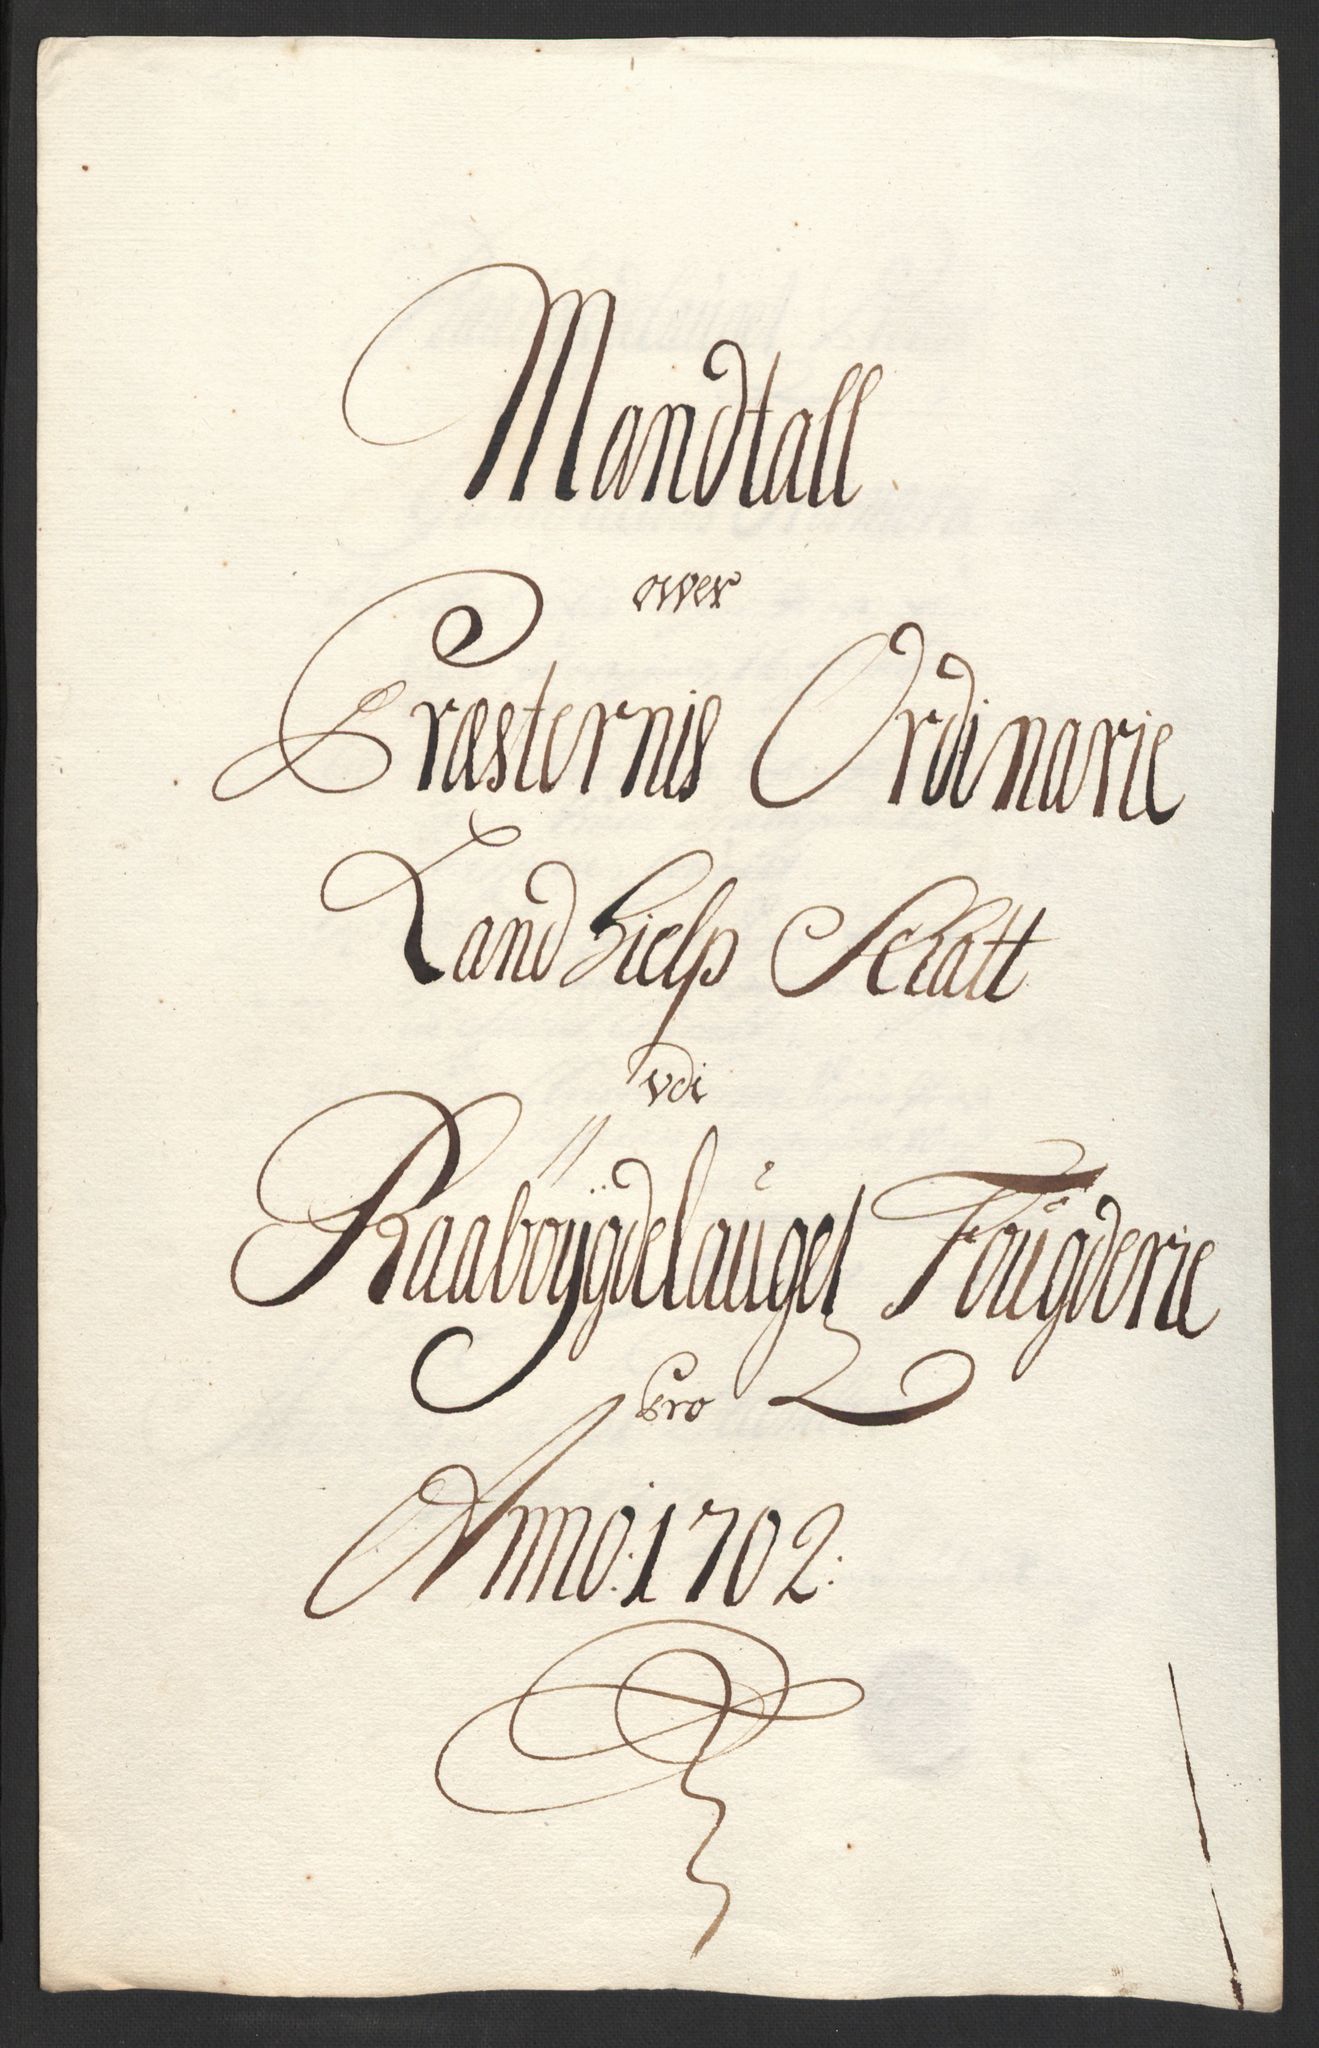 Mandtall
ower
Præsternis Ordinarie
Landhielp Schatt
vdi
Raaböÿgdelauget Fougderie
Pro
Anno: 1702: